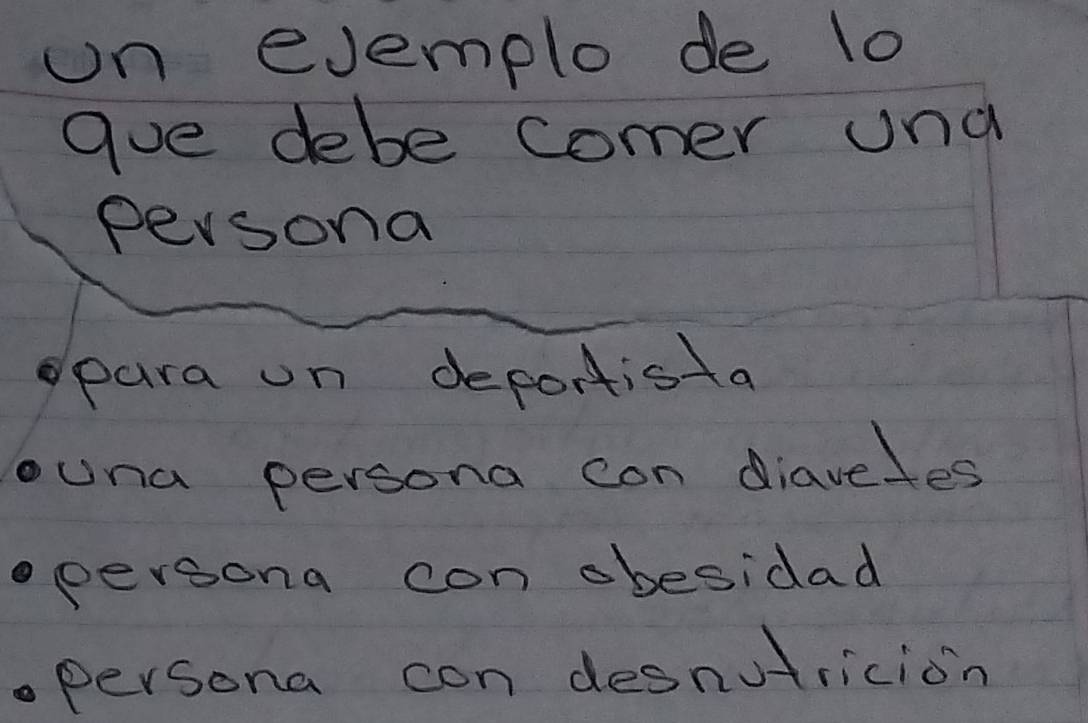 un ejemplo de lo
que debe comer una
persona
•para un deportista
•una persona con diavetes
•persona con obesidad
•persona con desnutrición